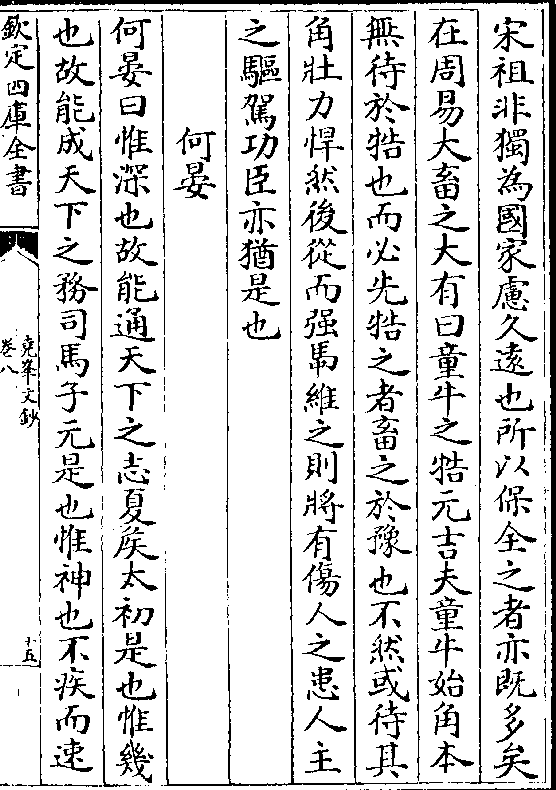 宋祖非獨為國家慮久遠也所以保全之者亦既多矣
在周易大畜之大有曰童牛之牿元吉夫童牛始角本
無待於牿也而必先牿之者畜之於豫也不然或待其
角壯力悍然後從而强馽維之則將有傷人之患人主
之驅駕功臣亦猶是也
何晏
何晏曰惟深也故能通天下之志夏侯太初是也惟幾
也故能成天下之務司馬子元是也惟神也不疾而速
欽定四庫全書
堯峯文鈔
卷八
十五